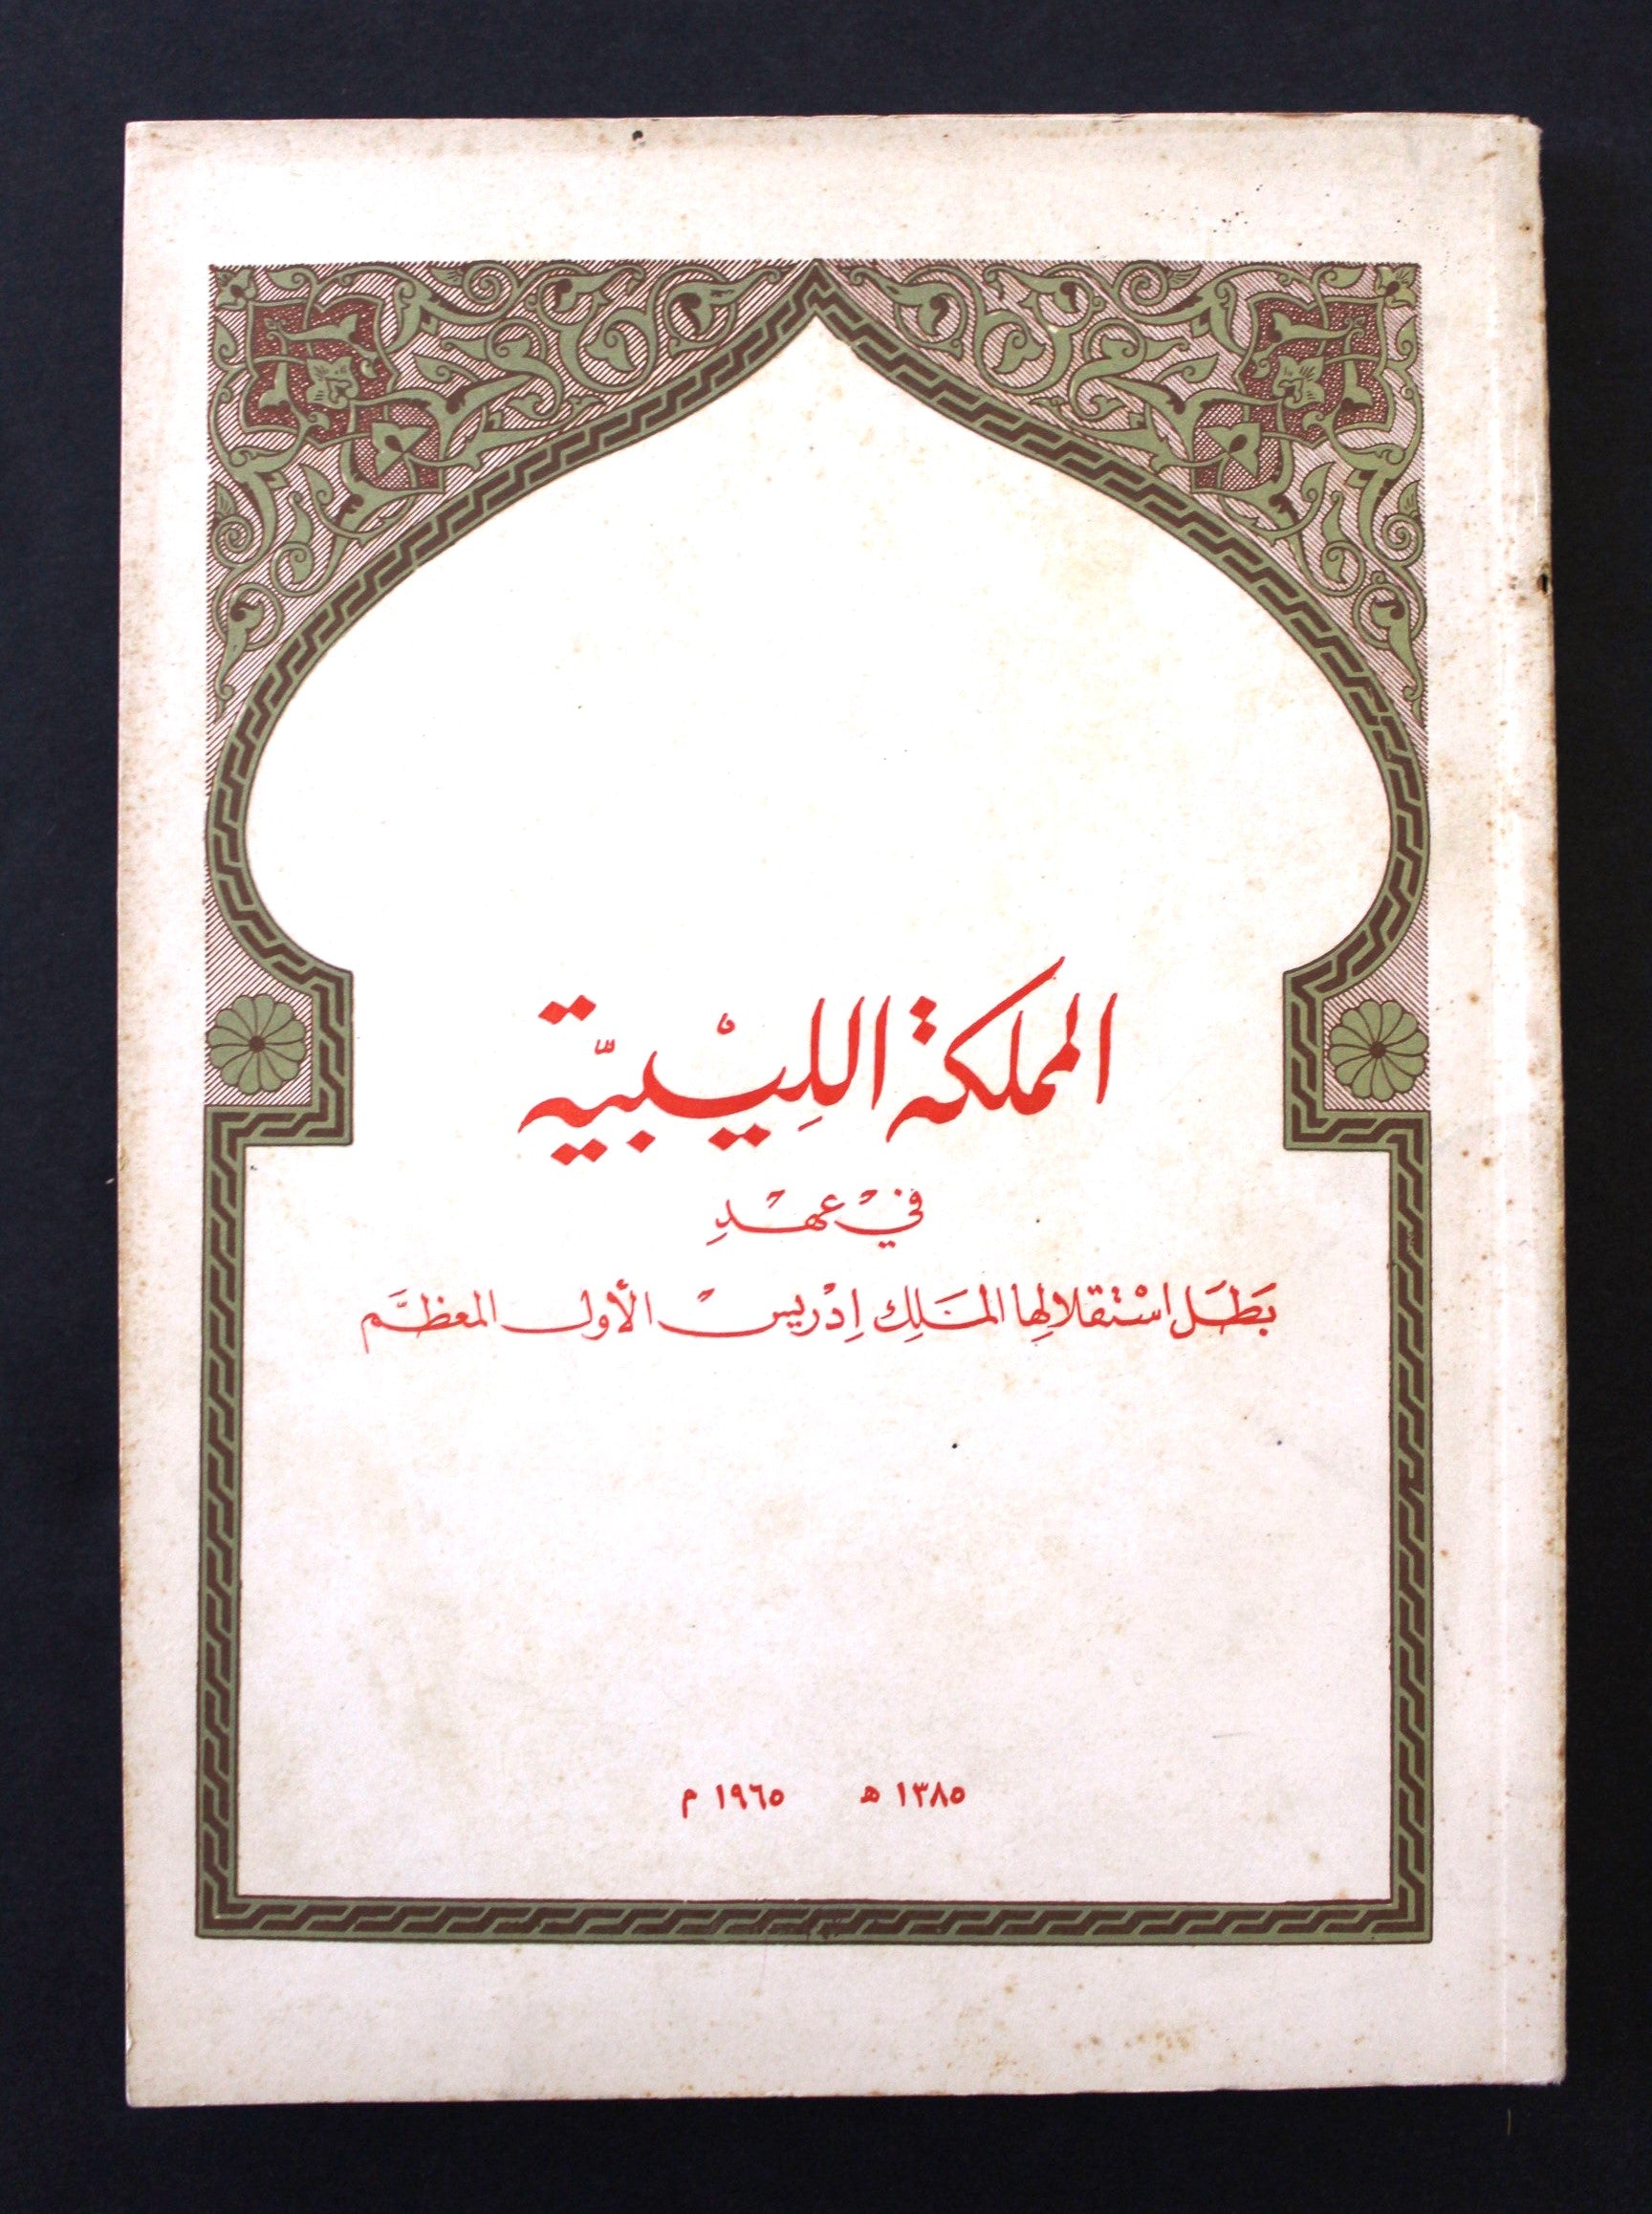 المملكة اللِيْبيّة
فيْ عهْدِ
بَطَل اسْتقلالِها المَلِك اِدْريسْ الأول المعظَّم
١٣٨٥ ه ١٩٦٥ م